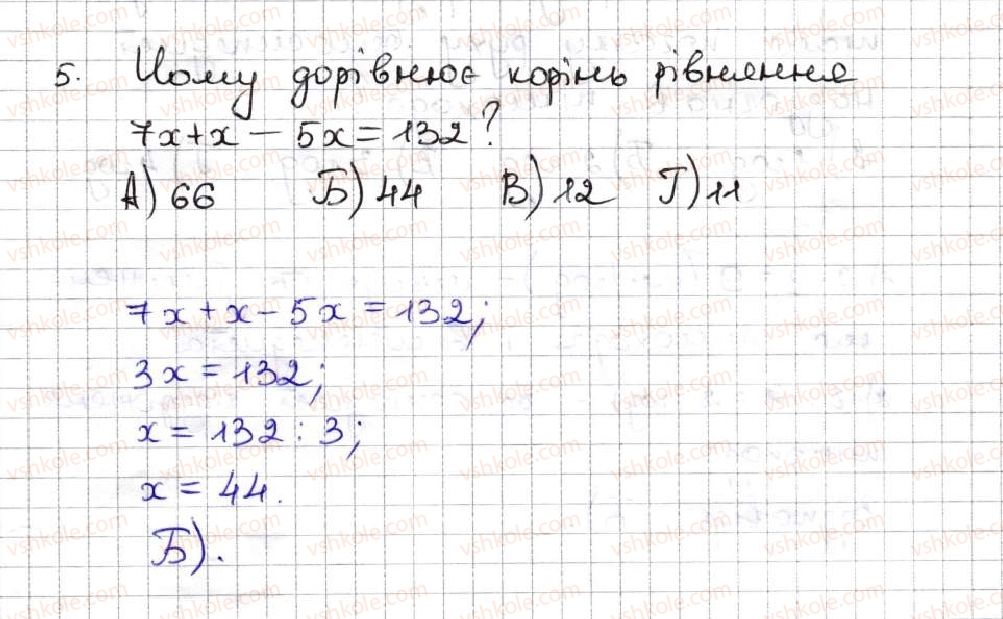 5. Чому дорівнює корінь рівняння
7x+x-5x=132?
А) 66 Б) 44 В) 12 Г) 11
7x+x-5x=132;
3x=132;
x=132:3;
x=44.
Б).